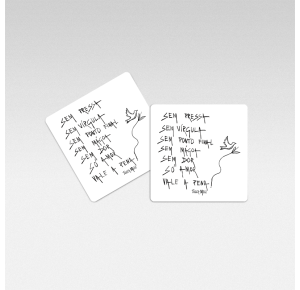 SEM PRESSA
SEM VÍRGULA
SEM PONTO FINAL
SEM
SEM DOR
SÓ AMOR
VALE A PENA
SEM PRESSA
SEM VÍRGULA
SEM PONTO FINAL
SEM
SEM DOR
SÓ AMOR
VALE A PENA